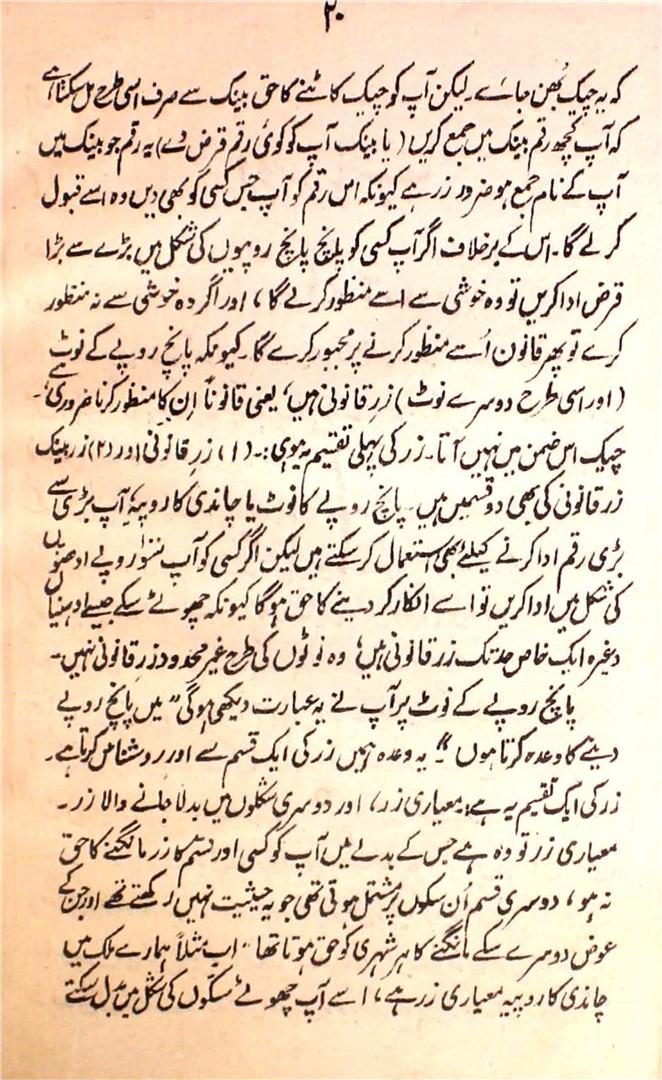 ۲۰
کہ یہ چیک بھُن جائے۔ لیکن آپ کو چیک کاٹنے کا حق بینک سے صرف اسی طرح مل سکتا ہے
کہ آپ کچھ رقم بینک میں جمع کریں (یا بینک آپ کو کوئی رقم قرض دے) یہ رقم جو بینک میں
آپ کے نام جمع ہو ضرور زر ہے کیونکہ اس رقم کو آپ جس کسی کو بھی دیں وہ اسے قبول
کر لے گا۔ اس کے برخلاف اگر آپ کسی کو پانچ پانچ روپیوں کی شکل میں بڑے سے بڑا
قرض ادا کریں تو وہ خوشی سے اسے منظور کرلے گا، اور اگر وہ خوشی سے نہ منظور
کرے تو پھر قانون اُسے منظور کرنے پر مجبور کرے گا۔ کیونکہ پانچ روپے کے نوٹ
(اور اسی طرح دوسرے نوٹ) زرِ قانونی ہیں، یعنی قانوناً اِن کا منظور کرنا ضروری ہے۔
چیک اس ضمن میں نہیں آتا۔ زر کی پہلی تقسیم یہ ہوئی:۔ (۱) زرِ قانونی اور (۲) زرِ بینک
زر قانونی کی بھی دو قسمیں ہیں۔ پانچ روپے کا نوٹ یا چاندی کا روپیہ آپ بڑی سے
بڑی رقم ادا کرنے کیلئے بھی استعمال کر سکتے ہیں لیکن اگر کسی کو آپ سَو روپے ادھنوں
کی شکل میں ادا کریں تو اسے انکار کر دینے کا حق ہوگا کیونکہ چھوٹے سکے جیسے ادھنیاں
وغیرہ ایک خاص حد تک زر قانونی ہیں، وہ نوٹوں کی طرح غیر محدود زرِ قانونی نہیں۔
پانچ روپے کے نوٹ پر آپ نے یہ عبارت دیکھی ہوگی "میں پانچ روپے
دینے کا وعدہ کرتا ہوں"۔ یہ وعدہ ہمیں زر کی ایک قسم سے اور روشناس کرتا ہے۔
زر کی ایک تقسیم یہ ہے: معیاری زر، اور دوسری شکلوں میں بدلا جانے والا زر۔
معیاری زر تو وہ ہے جس کے بدلے میں آپ کو کسی اور قسم کا زر مانگنے کا حق
نہ ہو، دوسری قسم اُن سکوں پر مشتمل ہوتی تھی جو یہ حیثیت نہیں رکھتے تھے اور جن کے
عوض دوسرے سکے مانگنے کا ہر شہری کو حق ہوتا تھا۔ اب مثلاً ہمارے ملک میں
چاندی کا روپیہ معیاری زر ہے، اسے آپ چھوٹے سکوں کی شکل میں بدل سکتے